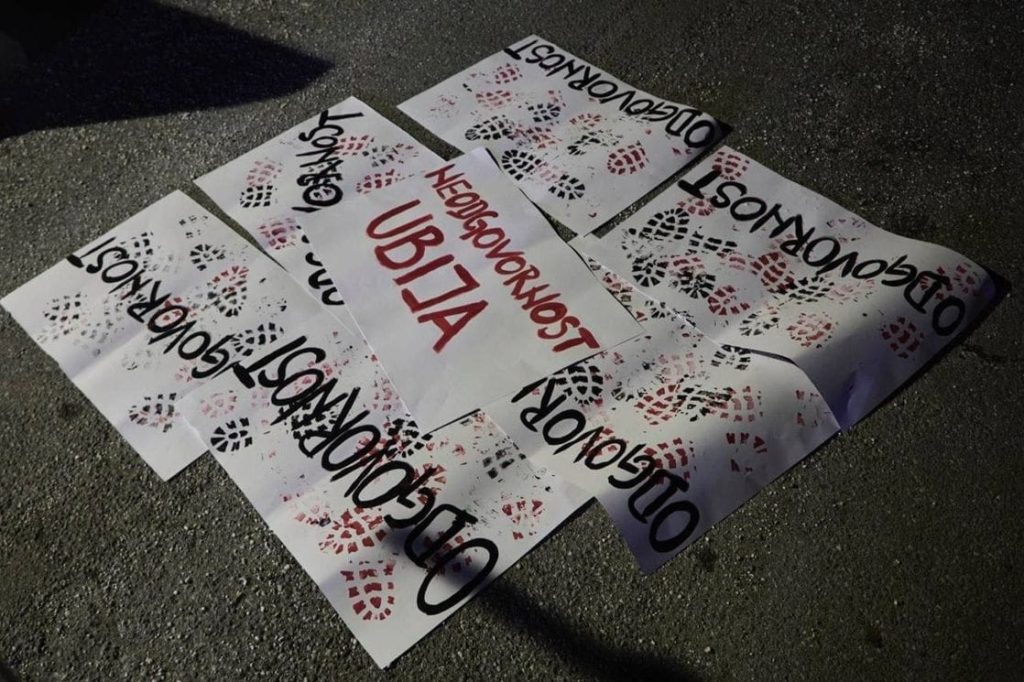 ODGOVORNOST
ORNOST
NEODGOVORNOST
UBIJA
ODGOVORNOST
GOVORNOST
ODGOVORNOST
ODGOVOR